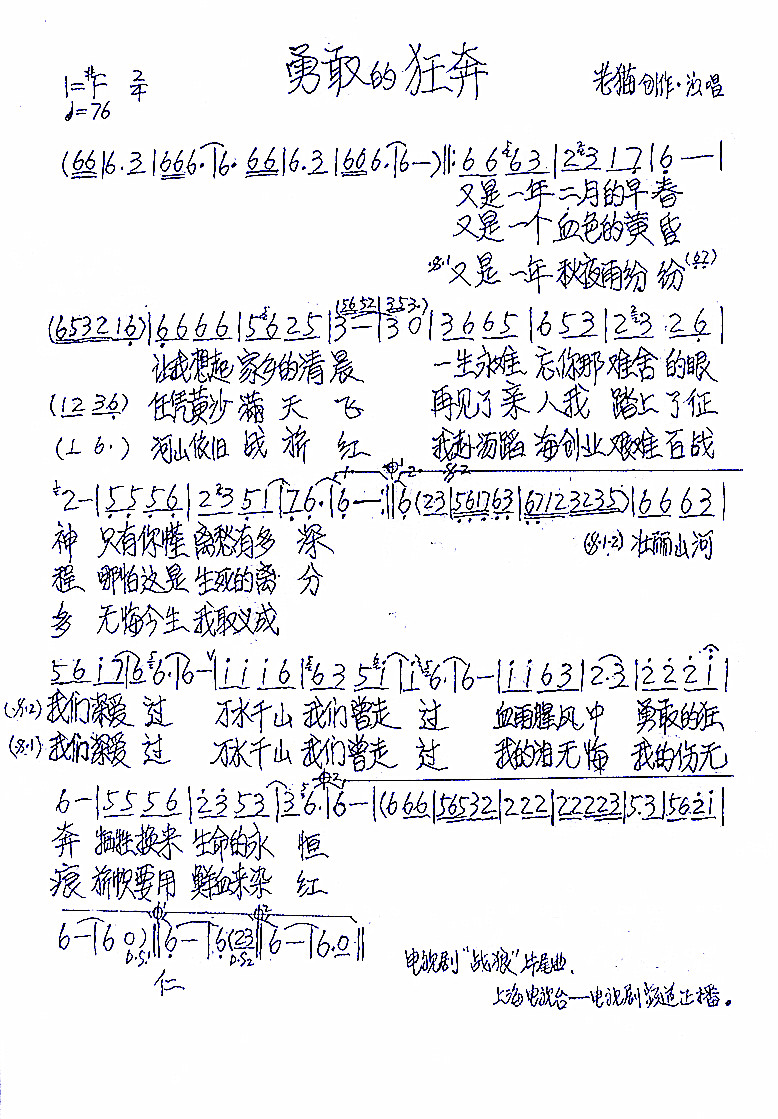 勇敢的狂奔
1=#F 2/4
♩=76
老猫创作·演唱
(66|6.3|666.|6. 66|6.3|666.|6—)‖:6 6 6 3|2 3 1 7|6 — —|
又是一年二月的早春
又是一个血色的黄昏
又是一年秋夜雨纷纷
(6532 16)|6 6 6 6|5 6 2 5|3—|3 0|3 6 6 5|6 5 3|2 3 2 6|
(5652|353.)
让我想起家乡的清晨 一生永难忘你那难舍的眼
(12 36) 任凭黄沙满天飞 再见了亲人我踏上了征
(1 6.) 河山依旧战旗红 我赴汤蹈海创业艰难百战
2—|5 5 5 6|2 3 5 1|7 6.|6—:‖6 (23|561763|67123235)|6 6 6 3|
神 只有你懂离愁有多深 壮丽山河
程 哪怕这是生死的离分
多 无悔今生我取义成
5 6 1 7|6 6.|6—|1 1 1 6|6 3 5 1|1 6.|6—|1 1 6 3|2.3|2 2 2 1|
我们深爱过 万水千山我们曾走过 血雨腥风中 勇敢的狂
我们深爱过 万水千山我们曾走过 我的泪无悔 我的伤无
6—|5 5 5 6|2 3 5 3|3 6.|6—|(666|56532|222|22223|5.3|5621|
奔 牺牲换来生命的永恒
痕 旗帜要用鲜血来染红
6—|6 0)‖6—|6(23‖6—|6.0‖
D.S1 D.S2
仁
电视剧“战狼”片尾曲.
上海电视台——电视剧频道正播。